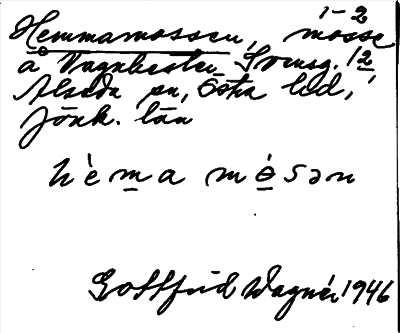 1-2
Hemmamossen, mosse
å Vagnhester Svensg. 1/2,
Alseda sn, Östra hd,
Jönk. län
hèma mósən
Gottfrid Wagnér 1946